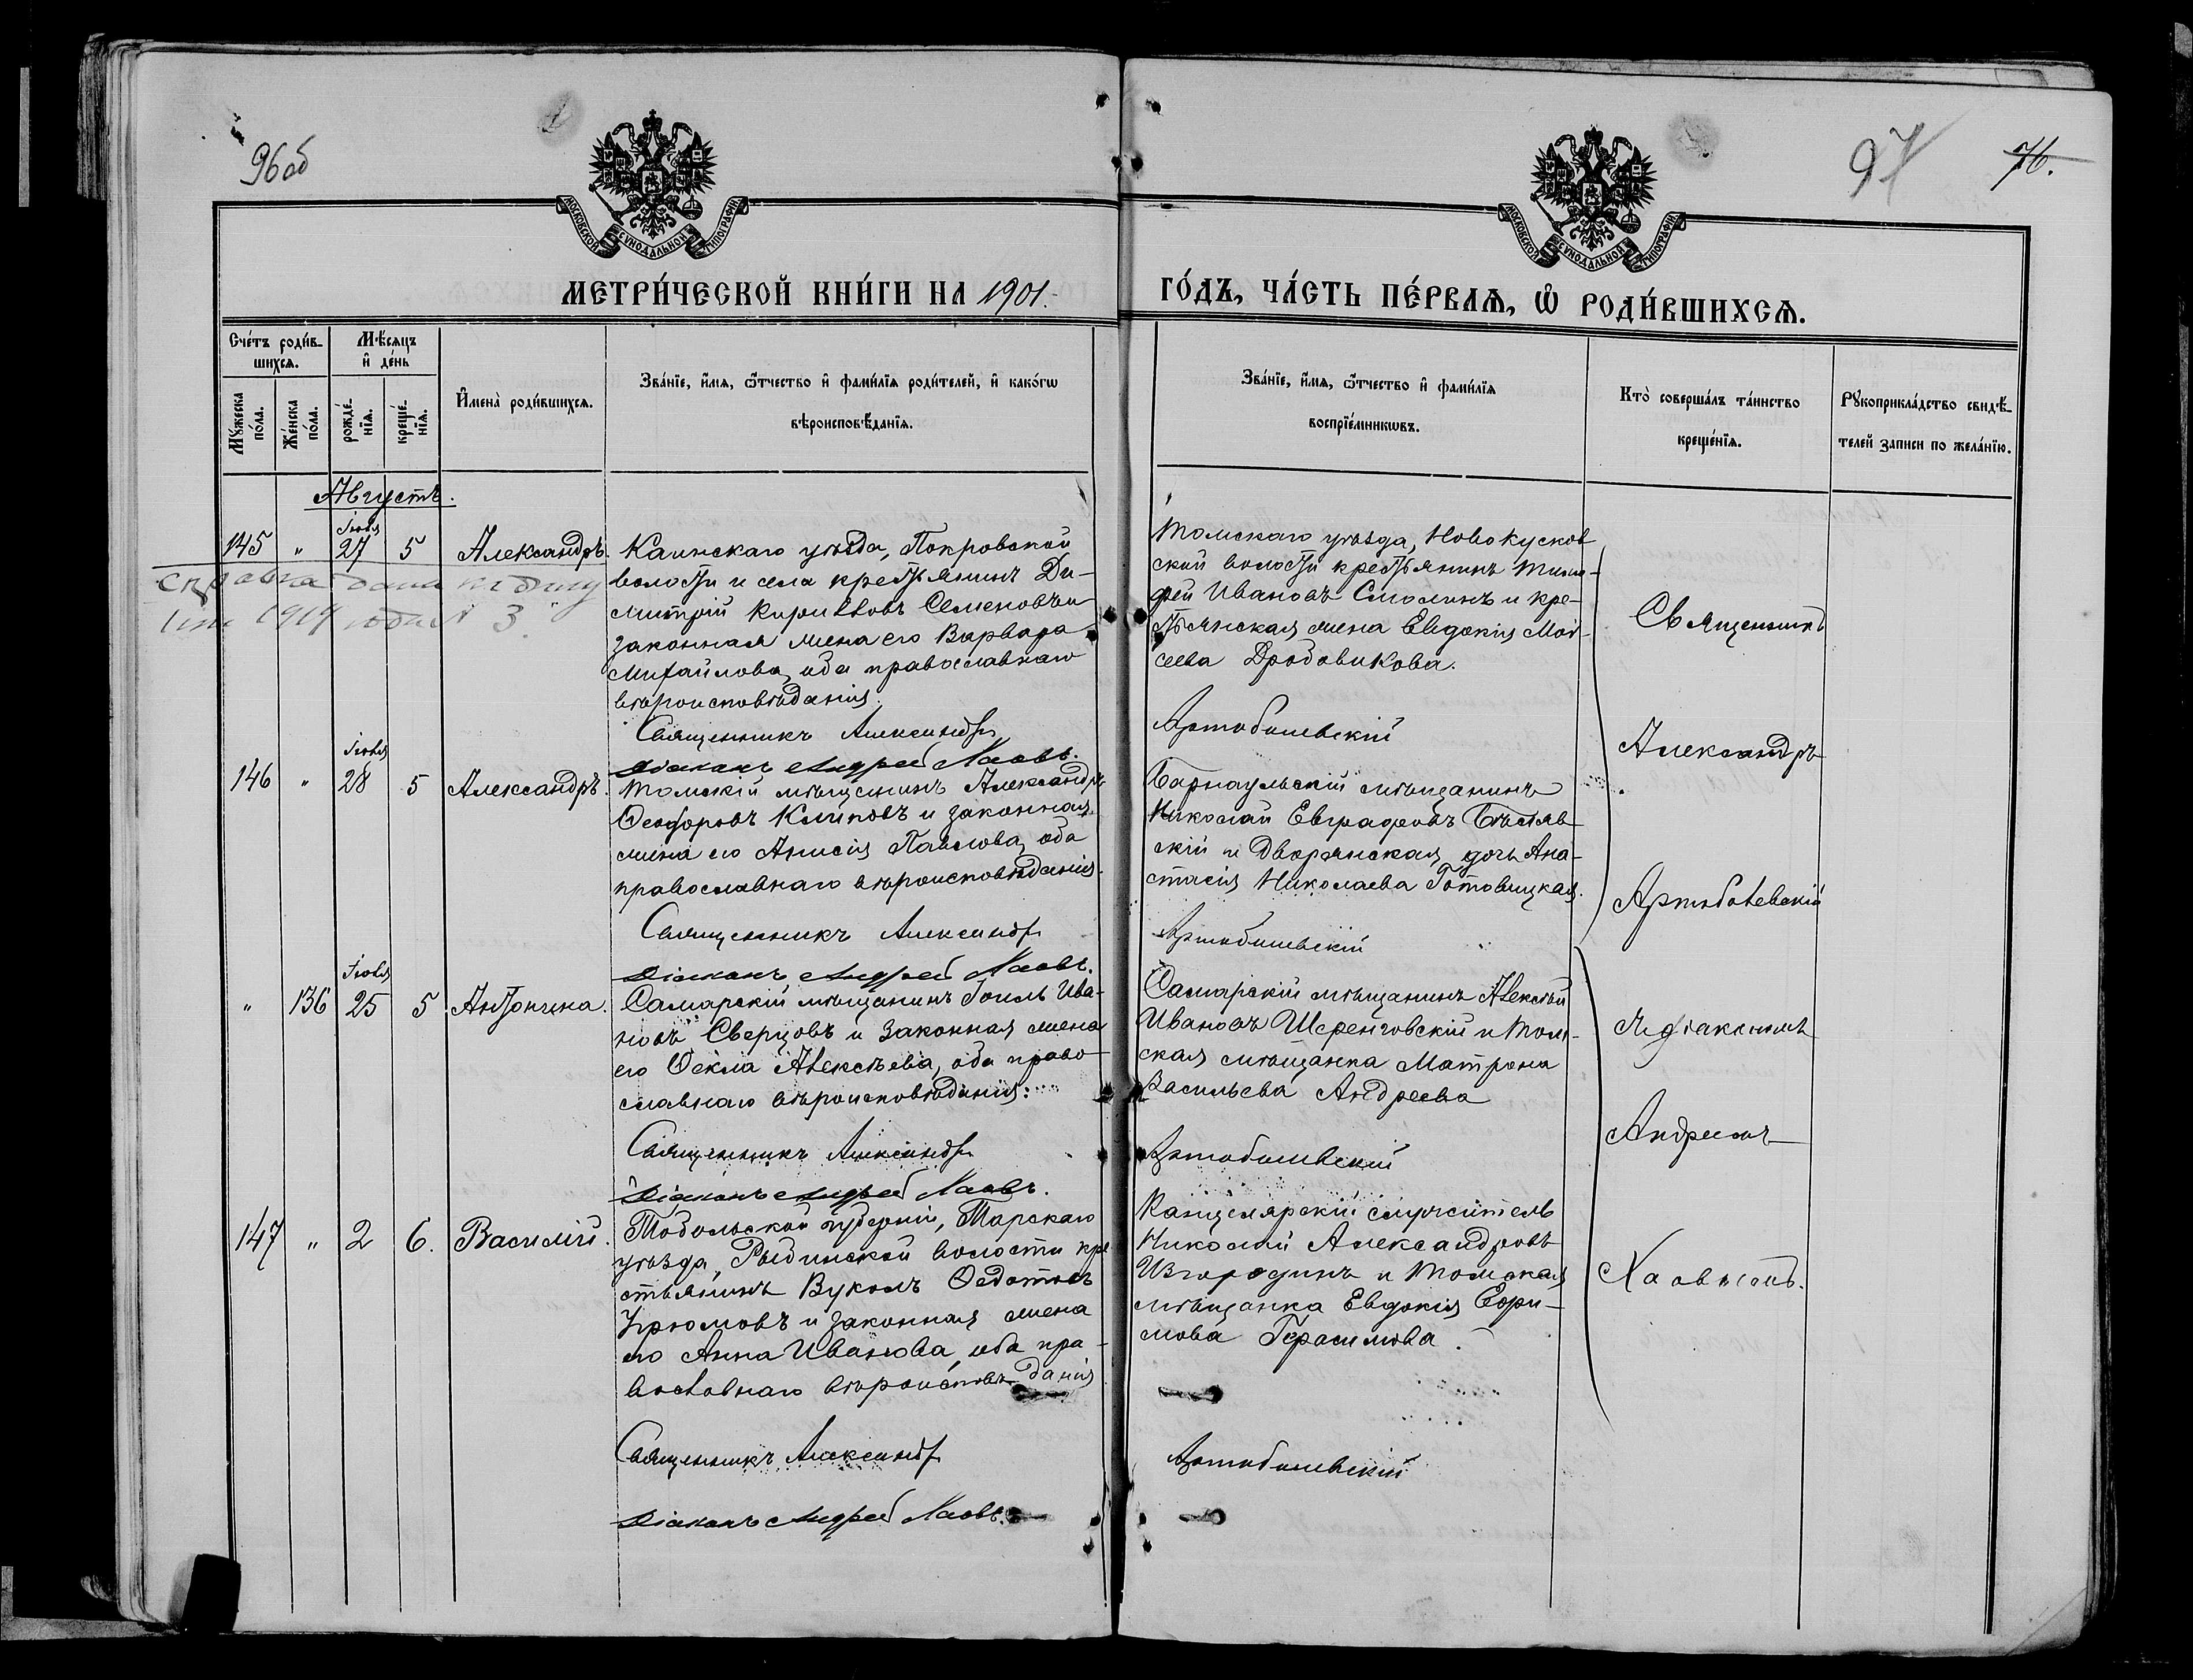 96 об
97
76.
МОСКОВСКОЙ СѴНОДАЛЬНОЙ ТИПОГРАФІИ
МОСКОВСКОЙ СѴНОДАЛЬНОЙ ТИПОГРАФІИ
МЕТРИ́ЧЕСКОЙ КНИ́ГИ НА 1901.
ГО́ДЪ, ЧА́СТЬ ПЕ́РВАѦ, Ѽ РОДИ́ВШИХСѦ.
Сче́тъ роди́в-
шихсѧ.
Мѣ́сѧцъ
и҆ де́нь
Мꙋ́жеска
по́ла.
Же́нска
по́ла.
рожде́-
нїѧ.
креще́-
нїѧ.
И҆мена̀ роди́вшихсѧ.
Зва́нїе, и҆́мѧ, ѻ҆́тчество и҆ фами́лїѧ роди́телей, и҆ како́гѡ
вѣроисповѣ́данїѧ.
Зва́нїе, и҆́мѧ, ѻ҆́тчество и҆ фами́лїѧ
воспрїе́мникѡвъ.
Кто̀ соверша́лъ та́инство
креще́нїѧ.
Рꙋкоприкла́дство свидѣ́-
телей записи по жела́нїю.
Августъ.
145 " Іюля 27 5 Александръ.
Каинскаго уѣзда, Покровской
волости и села крестьянинъ Ди-
митрій Кириловъ Семеновъ и
законная жена его Варвара
Михайлова, оба православнаго
вѣроисповѣданія.
Томскаго уѣзда, Новокусков
ской волости крестьянинъ Тимо-
фей Ивановъ Смолинъ и кре-
стьянская жена Евдокія Мои-
сеева Дробовикова.
справка дана
1919 года № 3
Священникъ Александръ Артоболевскій
Діаконъ Андрей Хаовъ.
146 " Іюля 28 5 Александръ.
Томскій мѣщанинъ Александръ
Ѳеодоровъ Климовъ и законная
жена его Анисія Павлова, оба
православнаго вѣроисповѣданія.
Барнаульскій мѣщанинъ
Николай Евграфовъ
скій и Дворянская дочь Ана-
стасія Николаева Готовицкая.
Священникъ Александръ Артоболевскій
Діаконъ Андрей Хаовъ.
" 136 Іюля 25 5 Антонина.
Самарскій мѣщанинъ Іоиль Ива-
новъ Сверцовъ и законная жена
его Ѳекла Алексѣева, оба право-
славнаго вѣроисповѣданія.
Самарскій мѣщанинъ Алексѣй
Ивановъ Шеренговскій и Том-
ская мѣщанка Матрона
Васильева Андреева
Священникъ Александръ Артоболевскій
Діаконъ Андрей Хаовъ.
147 " 2 6. Василій.
Тобольской губерніи, Тарскаго
уѣзда, Рыбинской волости кре
стьянинъ Вуколъ Ѳедотовъ
Угрюмовъ и законная жена
его Анна Иванова, оба пра-
вославнаго вѣроисповѣданія
Канцелярскій служитель
Николай Александровъ
Изгородинъ и Томская
мѣщанка Евдокія Ефи-
мова Герасимова.
Священникъ Александръ Артоболевскій
Діаконъ Андрей Хаовъ.
Священникъ
Александръ
Артоболевскій
съ діакономъ
Андреемъ
Хаовымъ.